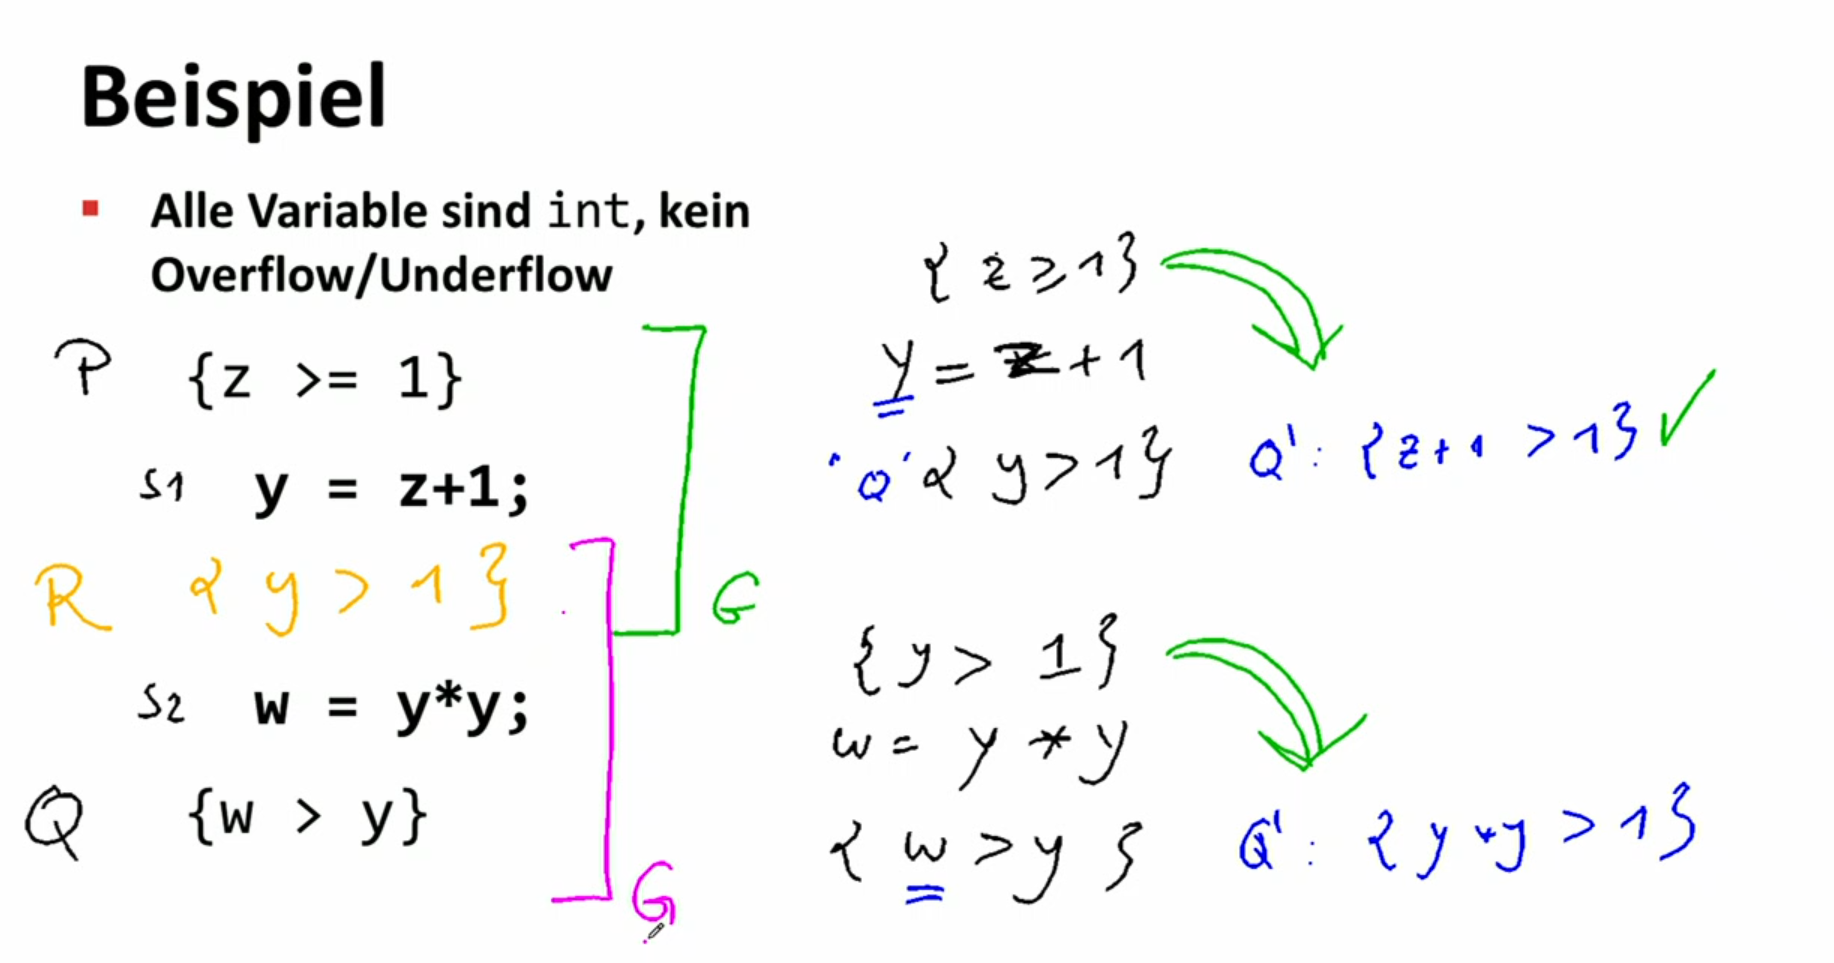 Beispiel
Alle Variable sind int, kein
Overflow/Underflow
P {z >= 1}
S1 y = z+1;
R { y > 1 }
S2 w = y*y;
Q {w > y}
G
G
{ z ≥ 1 }
y = z + 1
"Q" { y > 1 } Q': { z + 1 > 1 } ✓
{ y > 1 }
w = y * y
{ w > y } Q': { y * y > 1 }